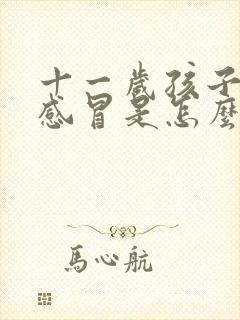 十一歲孩子
感冒是怎麼
馬心航